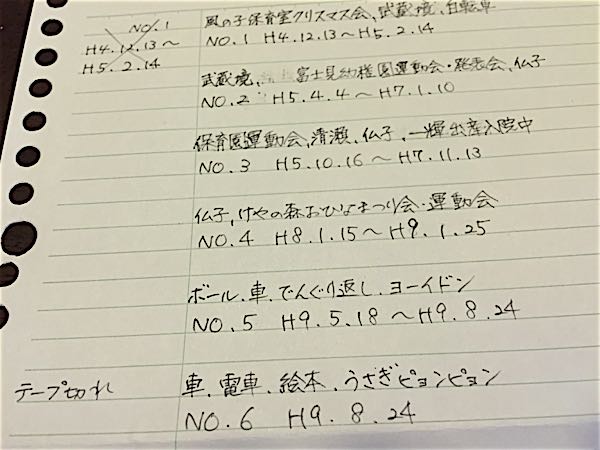 NO.1
H4.12.13〜
H5.2.14
風の子保育室クリスマス会,武蔵境,自転車
NO.1 H4.12.13〜H5.2.14
武蔵境, 富士見幼稚園運動会・発表会,仏子
NO.2 H5.4.4〜H7.1.10
保育園運動会,清瀬,仏子,一輝出産入院中
NO.3 H5.10.16〜H7.11.13
仏子,けやの森おひなまつり会・運動会
NO.4 H8.1.15〜H9.1.25
ボール.車.でんぐり返し.ヨーイドン
NO.5 H9.5.18〜H9.8.24
テープ切れ
車.電車.絵本.うさぎピョンピョン
NO.6 H9.8.24